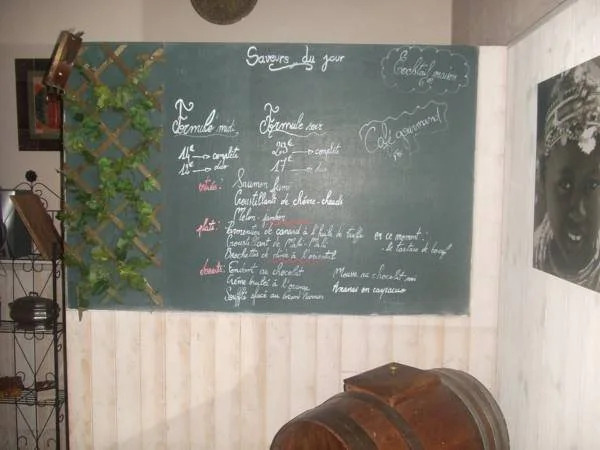 Saveurs du jour
Cocktail maison
Formule midi
14€ → complète
12€ → duo
Formule soir
23€ → complet
17€ → duo
Café gourmand
entrées : Saumon fumé
Croustillants de chèvre-chaud
Melon-jambon
plats : Parmentier de canard à l'huile de truffe
Croustillant de Mahi-Mahi
Brochettes de à l'oriental
en ce moment :
- le tartare de
desserts : Coulant au chocolat
Crème brulée à l'orange
Soufflé glacé au
Mousse au chocolat noir
Ananas en